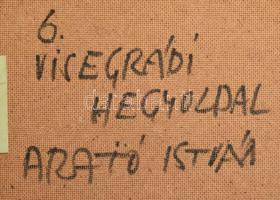 6.
VISEGRÁDI
HEGYOLDAL
ARATÓ ISTVÁN